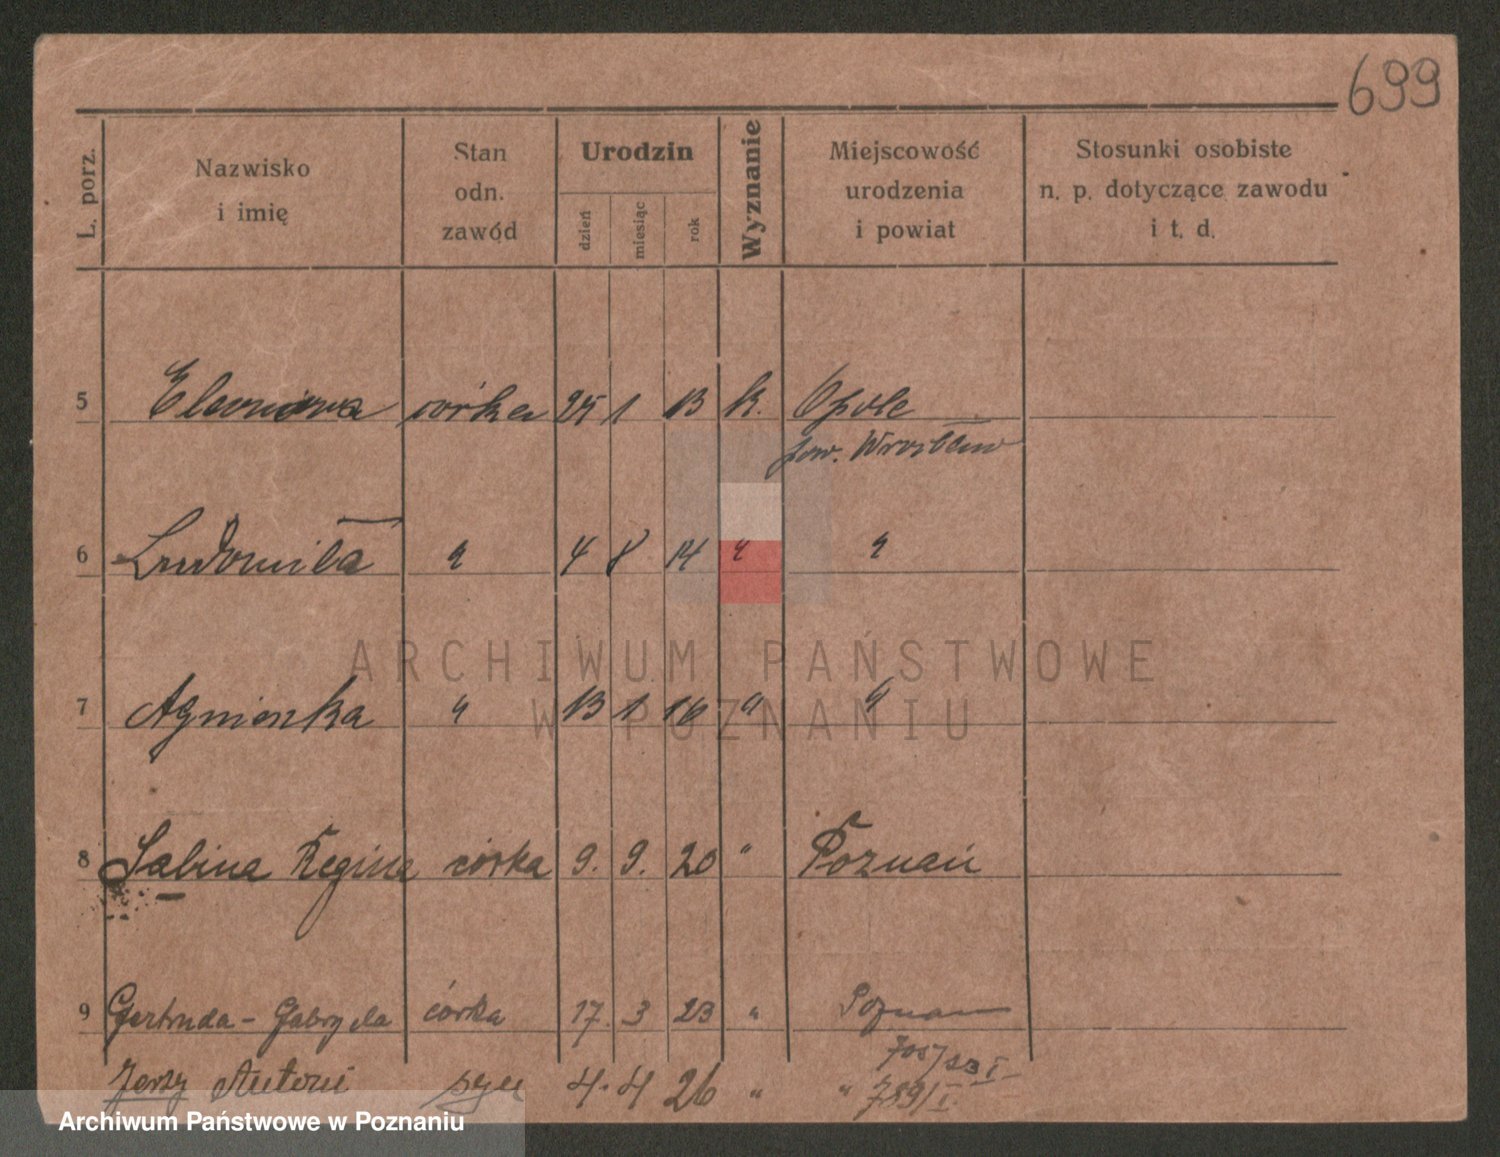 699
L. porz.
Nazwisko i imię
Stan odn. zawód
Urodzin
dzień
miesiąc
rok
Wyznanie
Miejscowość urodzenia i powiat
Stosunki osobiste n. p. dotyczące zawodu i t. d.
5 Eleonora córka 25 1 13 k. Opole
pow. Wrocław
6 Ludomiła " 4 8 14 " "
7 Agnieszka " 13 1 16 " "
ARCHIWUM PAŃSTWOWE
W POZNANIU
8 Sabina Regina córka 9. 9. 20 " Poznań
9 Gertruda - Gabryela córka 17. 3 23 " Poznań
Jerzy Antoni syn 4. 4 26 " " 789/I.
Archiwum Państwowe w Poznaniu